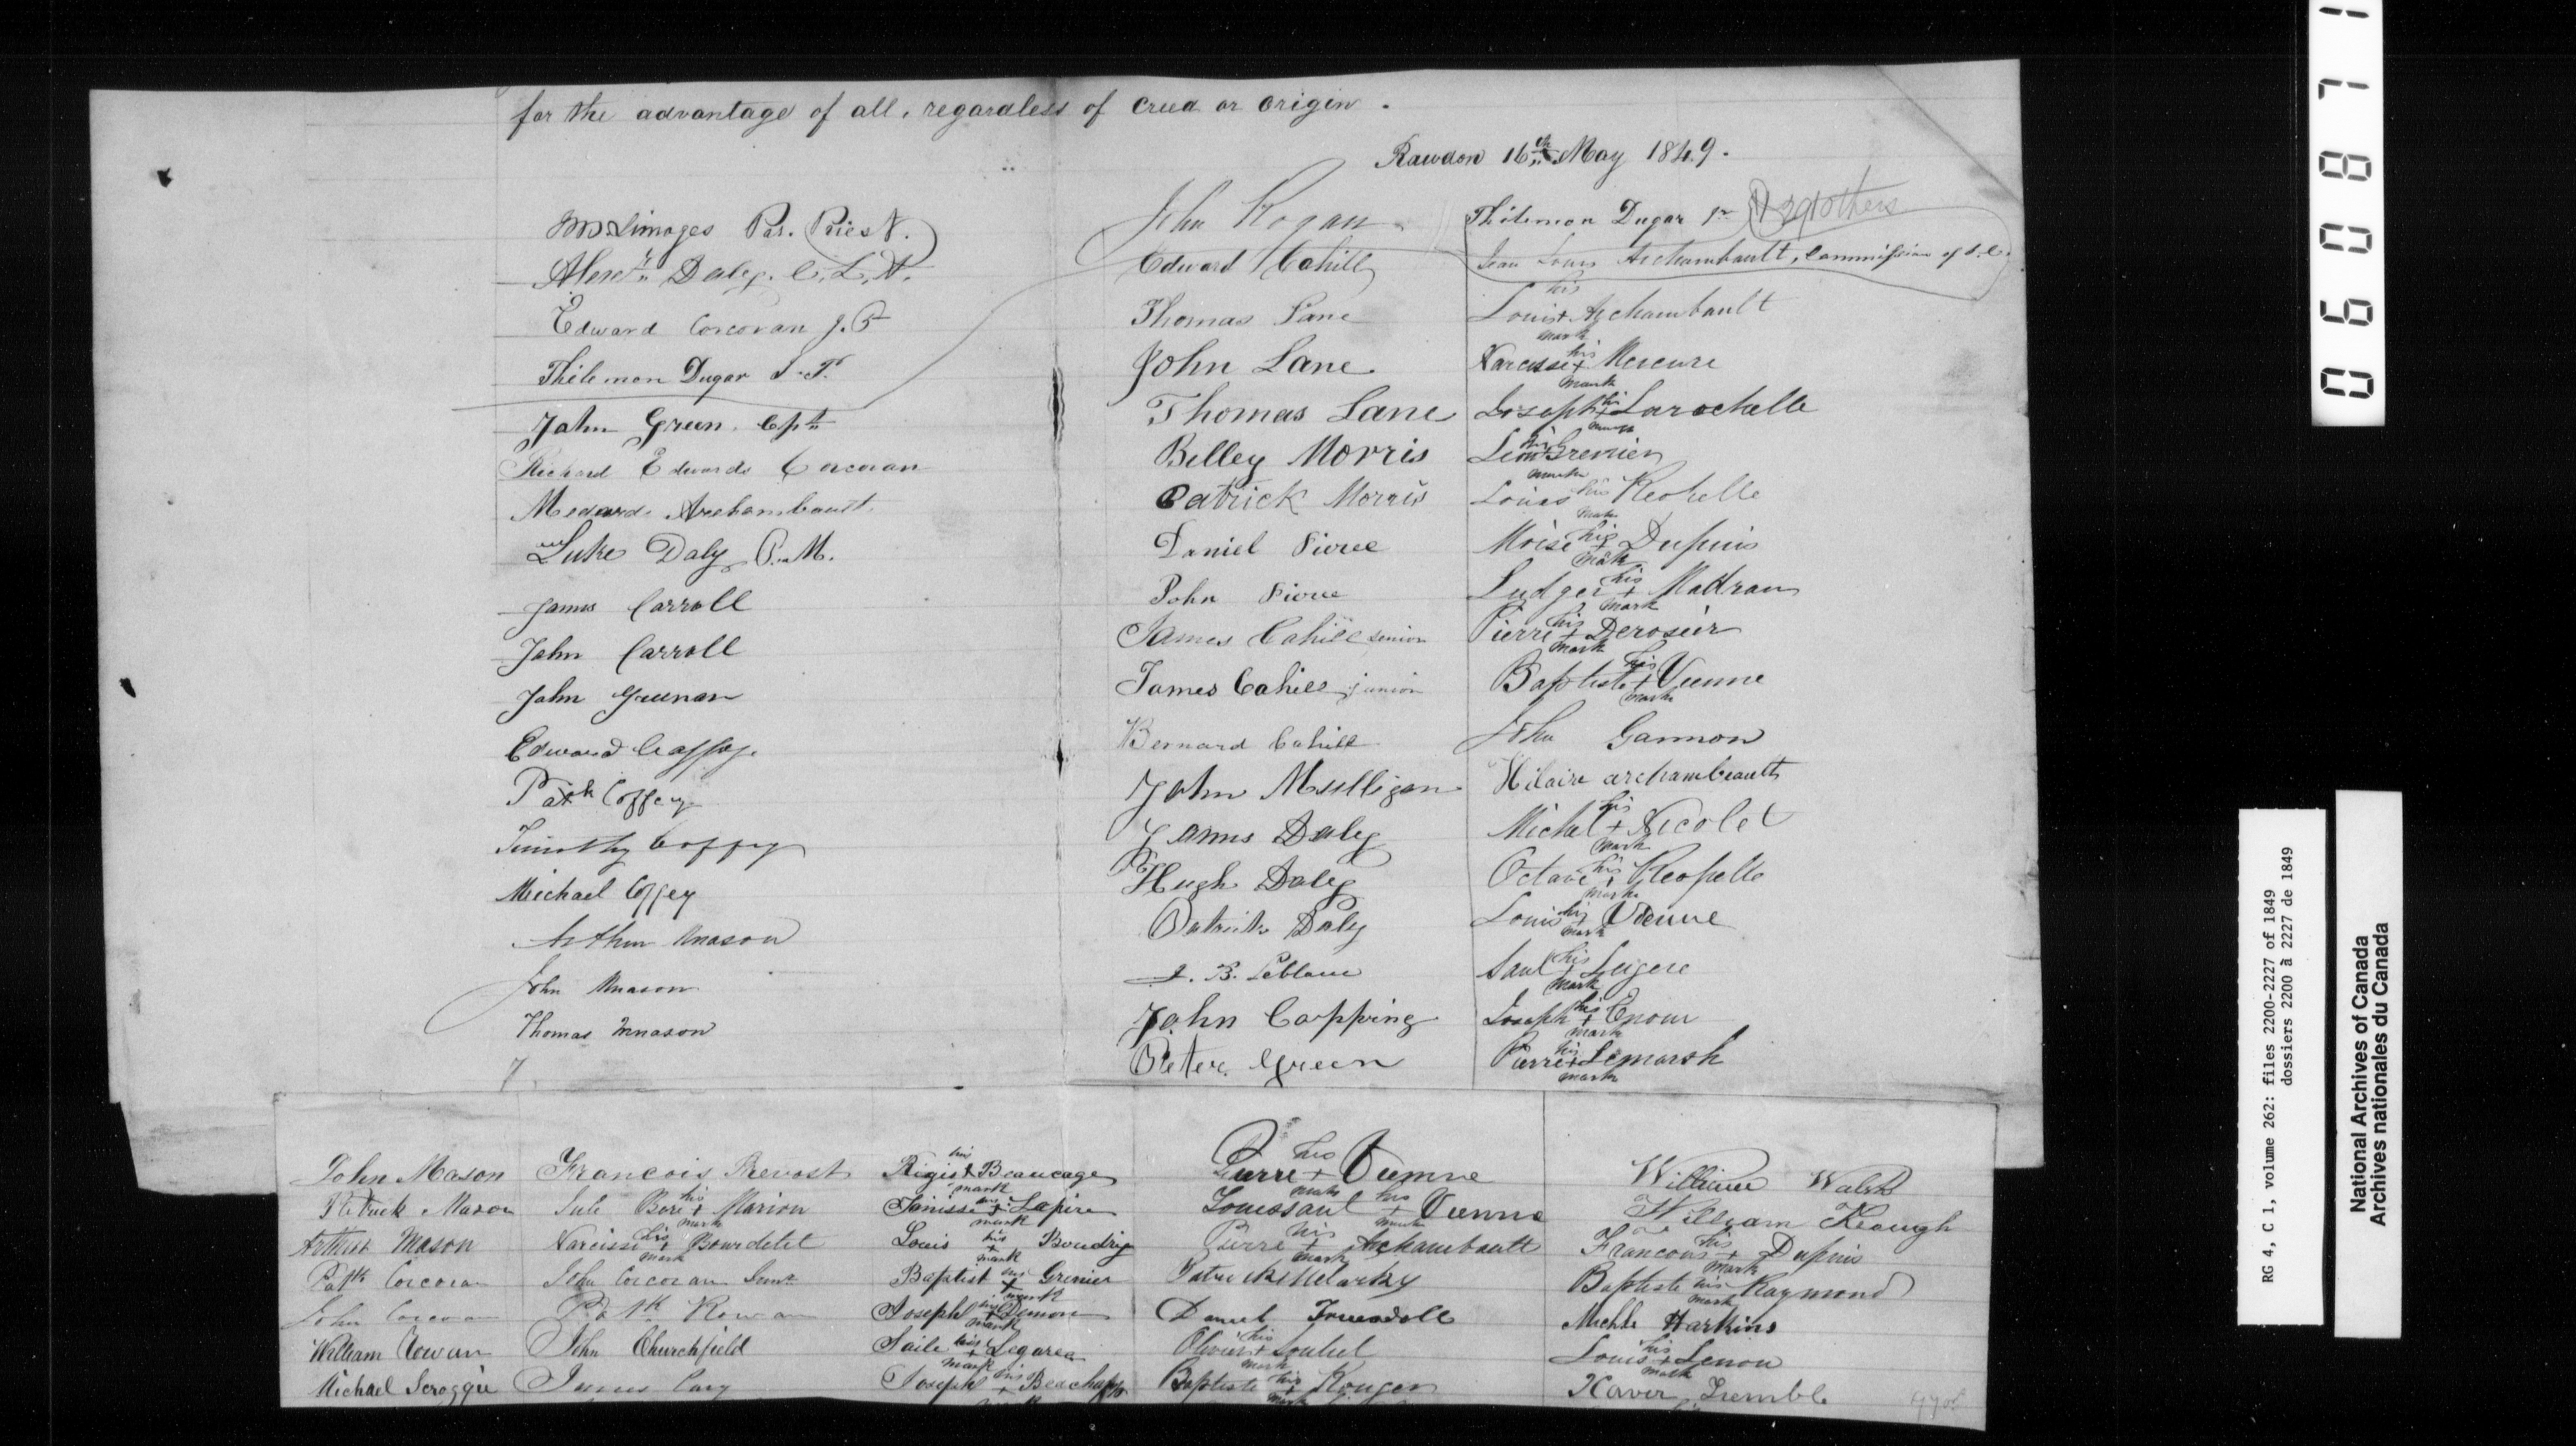 for the advantage of all, regardless of creed or origin.
Rawdon 16th May 1849.
Limoges Par. Priest.
Alexr Daly. C. L. P.
Edward Corcoran J. P
Philemon Dugar J. P.
John Green. Cptn
Richard Edwards Corcoran
Medard Archambault
Luke Daly P. M.
James Carroll
John Carroll
John Greenan
Edward Caffey.
Patk Coffey
Timothy Coffey
Michael Coffey
Arthur Mason
John Mason
Thomas Mason
John Rogan
Edward Cahill
Thomas Lane
John Lane
Thomas Lane
Billey Morris
Patrick Morris
Daniel Pierce
John Pierce
James Cahill senior
James Cahill junior
Bernard Cahill
John Mulligan
James Daly
Hugh Daly
Patrick Daly
J. B. Leblanc
John Copping
Peter Green
Philemon Dugar Jr & 290 others
Jean Louis Archambault, Commission of S. C.
Louis his + mark Archambault
Narcisse his + mark Mercure
Joseph his + mark Larochelle
Leon his + mark Grenier
Louis his mark Reopelle
Moise his + mark Dupuis
Ludger his + mark Madran
Pierre his + mark Derosier
Baptiste his + mark Vienne
John Gannon
Hilaire archambeault
Michel his + mark Nicolet
Octave his + mark Reopelle
Louis his + mark Vienne
Saul his + mark Legere
Joseph his + mark Enour
Pierre his + mark Lemarsh
John Mason
Patrick Mason
Arthur Mason
Patk Corcoran
John Corcoran
William Cowan
Michael Scroggie
Francois Prevost
Jule Bori his + mark Marion
Narcisse his + mark Bourdelet
John Corcoran Senr
Patk Rowan
John Churchfield
James Cary
Regis his + mark Beaucage
Janisse his + mark Lapire
Louis his + mark Boudrig
Baptist his + mark Grenier
Joseph his + mark Demon
Saile his + mark Legarea
Joseph his + Beachamp
Pierre his + mark Vienne
Toussaut his + mark Vienne
Pierre his + mark Archambault
Patrick McCarthy
Daniel Truesdell
Olivier his + mark Loubel
Baptiste his + mark Rouger
William Walsh
William Keough
Francois his + mark Dupuis
Baptiste his mark Raymond
Michle Harkins
Louis his + mark Lenou
Xaver Tremble
060871
RG 4, C 1, volume 262: files 2200-2227 of 1849
dossiers 2200 à 2227 de 1849
National Archives of Canada
Archives nationales du Canada